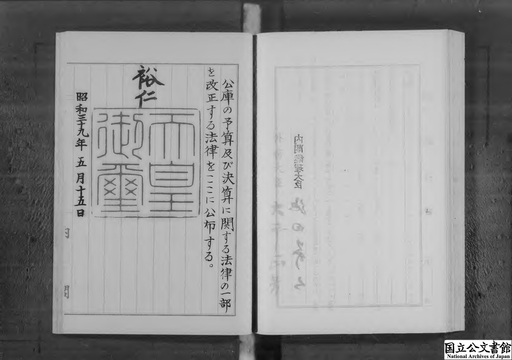 公庫の予算及び決算に関する法律の一部
を改正する法律をここに公布する。
裕仁
天皇
御璽
昭和三十九年五月十五日
国立公文書館
National Archives of Japan